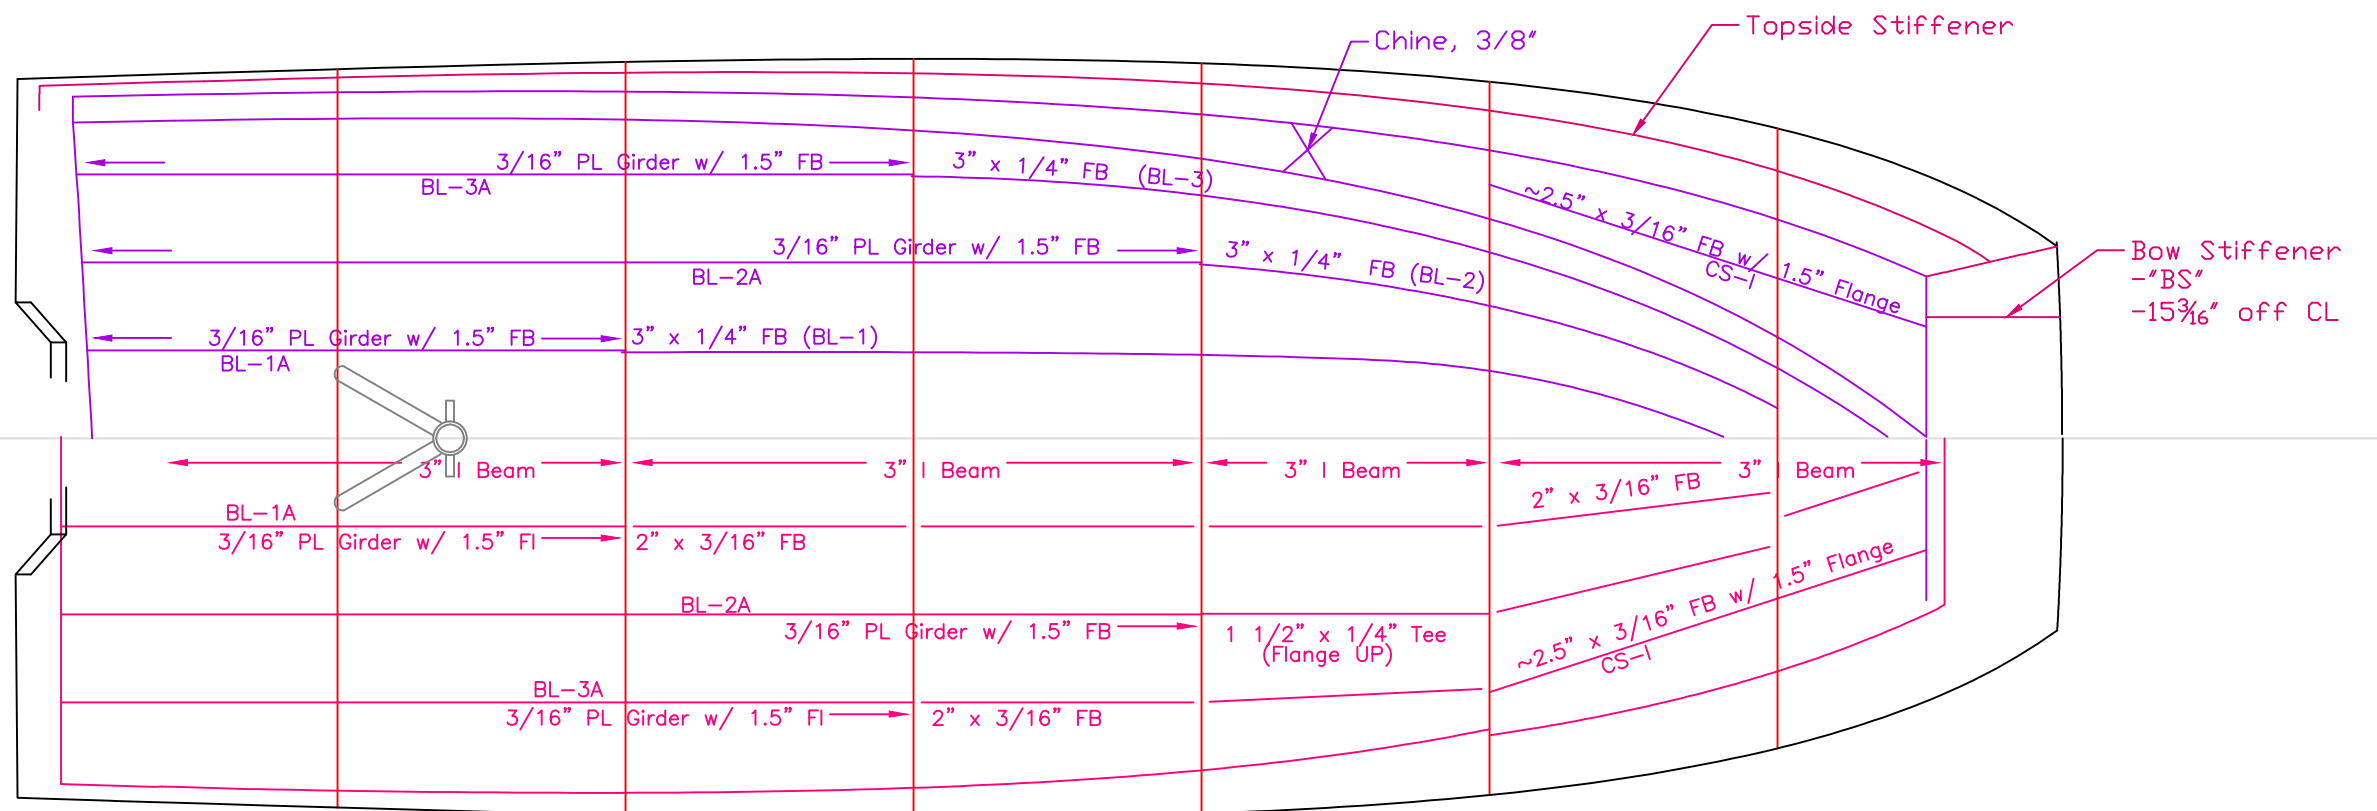 Topside Stiffener
Chine, 3/8"
3/16" PL Girder w/ 1.5" FB
3" x 1/4" FB (BL-3)
BL-3A
~2.5" x 3/16" FB w/ 1.5" Flange
CS-1
3/16" PL Girder w/ 1.5" FB
3" x 1/4" FB (BL-2)
BL-2A
Bow Stiffener
-"BS"
-15 3/16" off CL
3/16" PL Girder w/ 1.5" FB
3" x 1/4" FB (BL-1)
BL-1A
3" I Beam
3" I Beam
3" I Beam
3" I Beam
2" x 3/16" FB
BL-1A
3/16" PL Girder w/ 1.5" Fl
2" x 3/16" FB
BL-2A
3/16" PL Girder w/ 1.5" FB
1 1/2" x 1/4" Tee
(Flange UP)
~2.5" x 3/16" FB w/ 1.5" Flange
CS-1
BL-3A
3/16" PL Girder w/ 1.5" Fl
2" x 3/16" FB